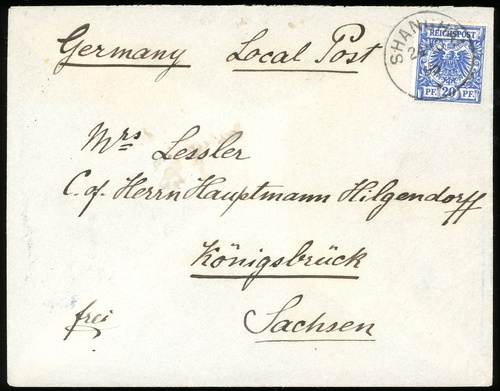 Germany Local Post
SHANGHAI
REICHSPOST
PF. 20 PF.
Mrs Lessler
C. of. Herrn Hauptmann Hilgendorff
Königsbrück
frei
Sachsen